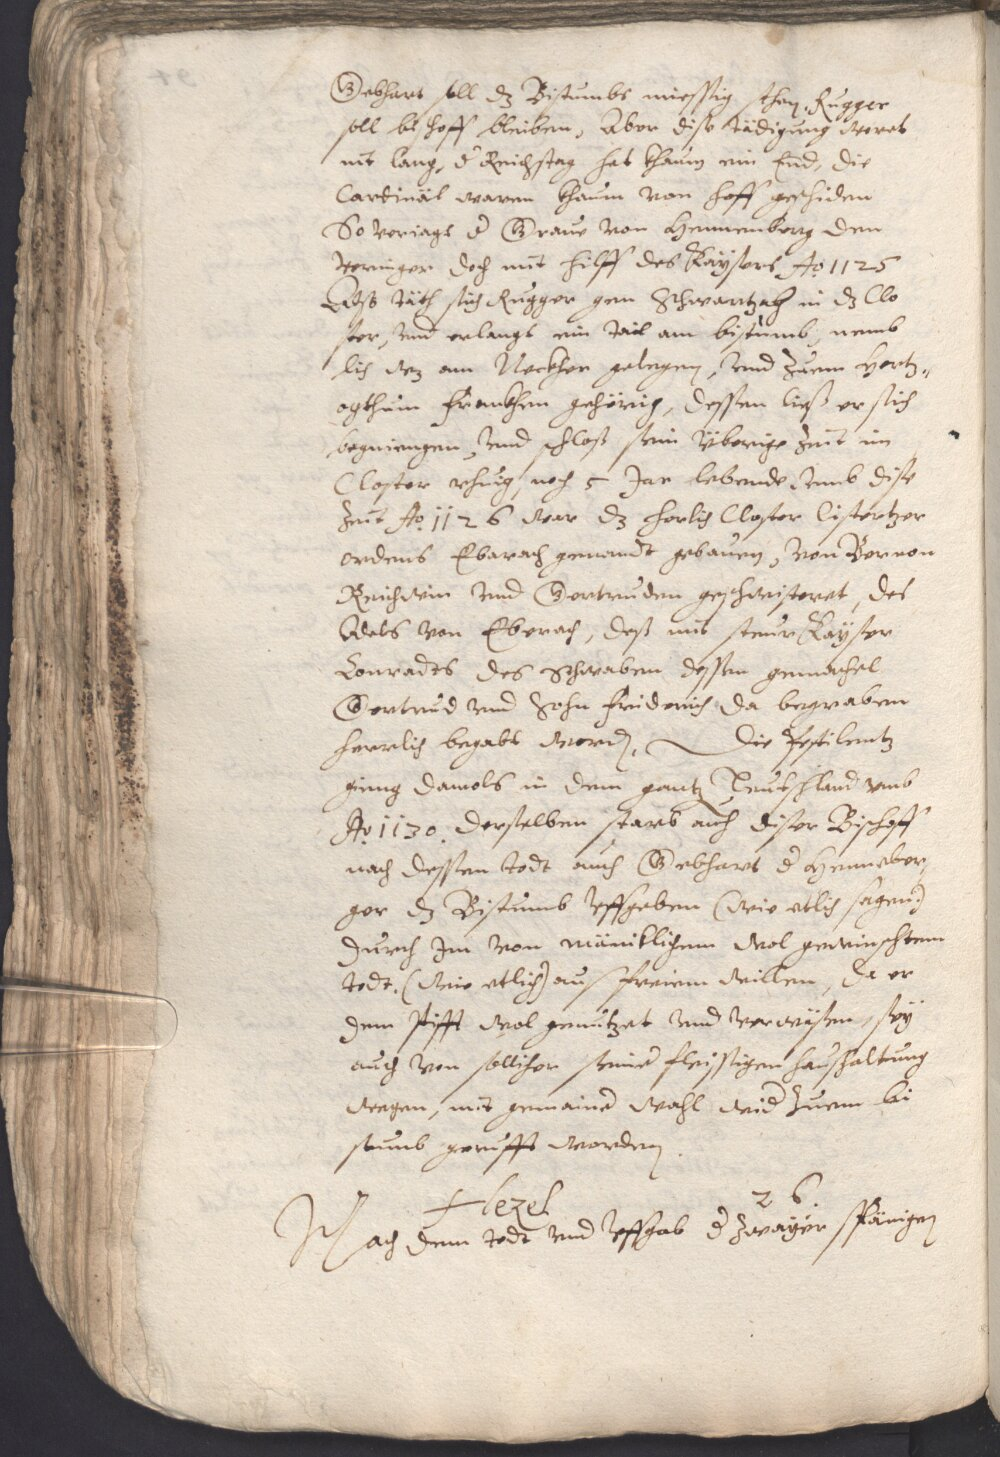 Gebhart soll dz Bistumbs miessig stehn, Rugger
soll bischoff bleiben, Aber dise tädigung weret
nit lang, der Reichstag hat khaum ein End, die
Cardinäl waren khaum von hoff geschiden
So veriagt der Graue von Hennenberg den
veringer doch mit hilff des Kaysers Ao 1125
Also täth sich Rugger gen Schwartzach in dz Clo
ster, vnd erlangt ein tail am bistumb, nemb
lich dez am Neckher gelegen, vnd zuem Hertz„
ogthum frankhen gehörig, dessen ließ er sich
begniengen, vnd schloß sein überige zeit im
Closter rhuig, noch 5 Jar lebende vmb dise
zeit Ao 1126 war dz herlich Closter Cistertzer
ordens Ebarach genandt gebauen, von Bernon
Reichwin vnd Gertruden geschwisteret, des
Adels von Eberach, dess mit steur Kayser
Conradts des Schwaben dessen gemachel
Gertrud vnd Sohn friderich da begraben
herrlich begabt worden, Die Pestilentz
gieng damols in dem gantz Teutschland vmb
Ao 1130. derselben starb auch diser Bischoff
nach dessen todt auch Gebhart der Henneber„
ger dz Bistumb vffgeben (wie etlich sagen)
durch Im von mäniklichem wol gewinschtem
todt. (wie etlich) aus freiem willen, da er
dem stifft wol genutzet vnd vorwisen, sey
auch von sollicher seiner fleissigen haushaltung
wegen, mit gemainer wahl wider zuem bi
stumb gerufft worden.
Hezel 26.
Nach dem todt vnd vffgab der zwayer spänigen